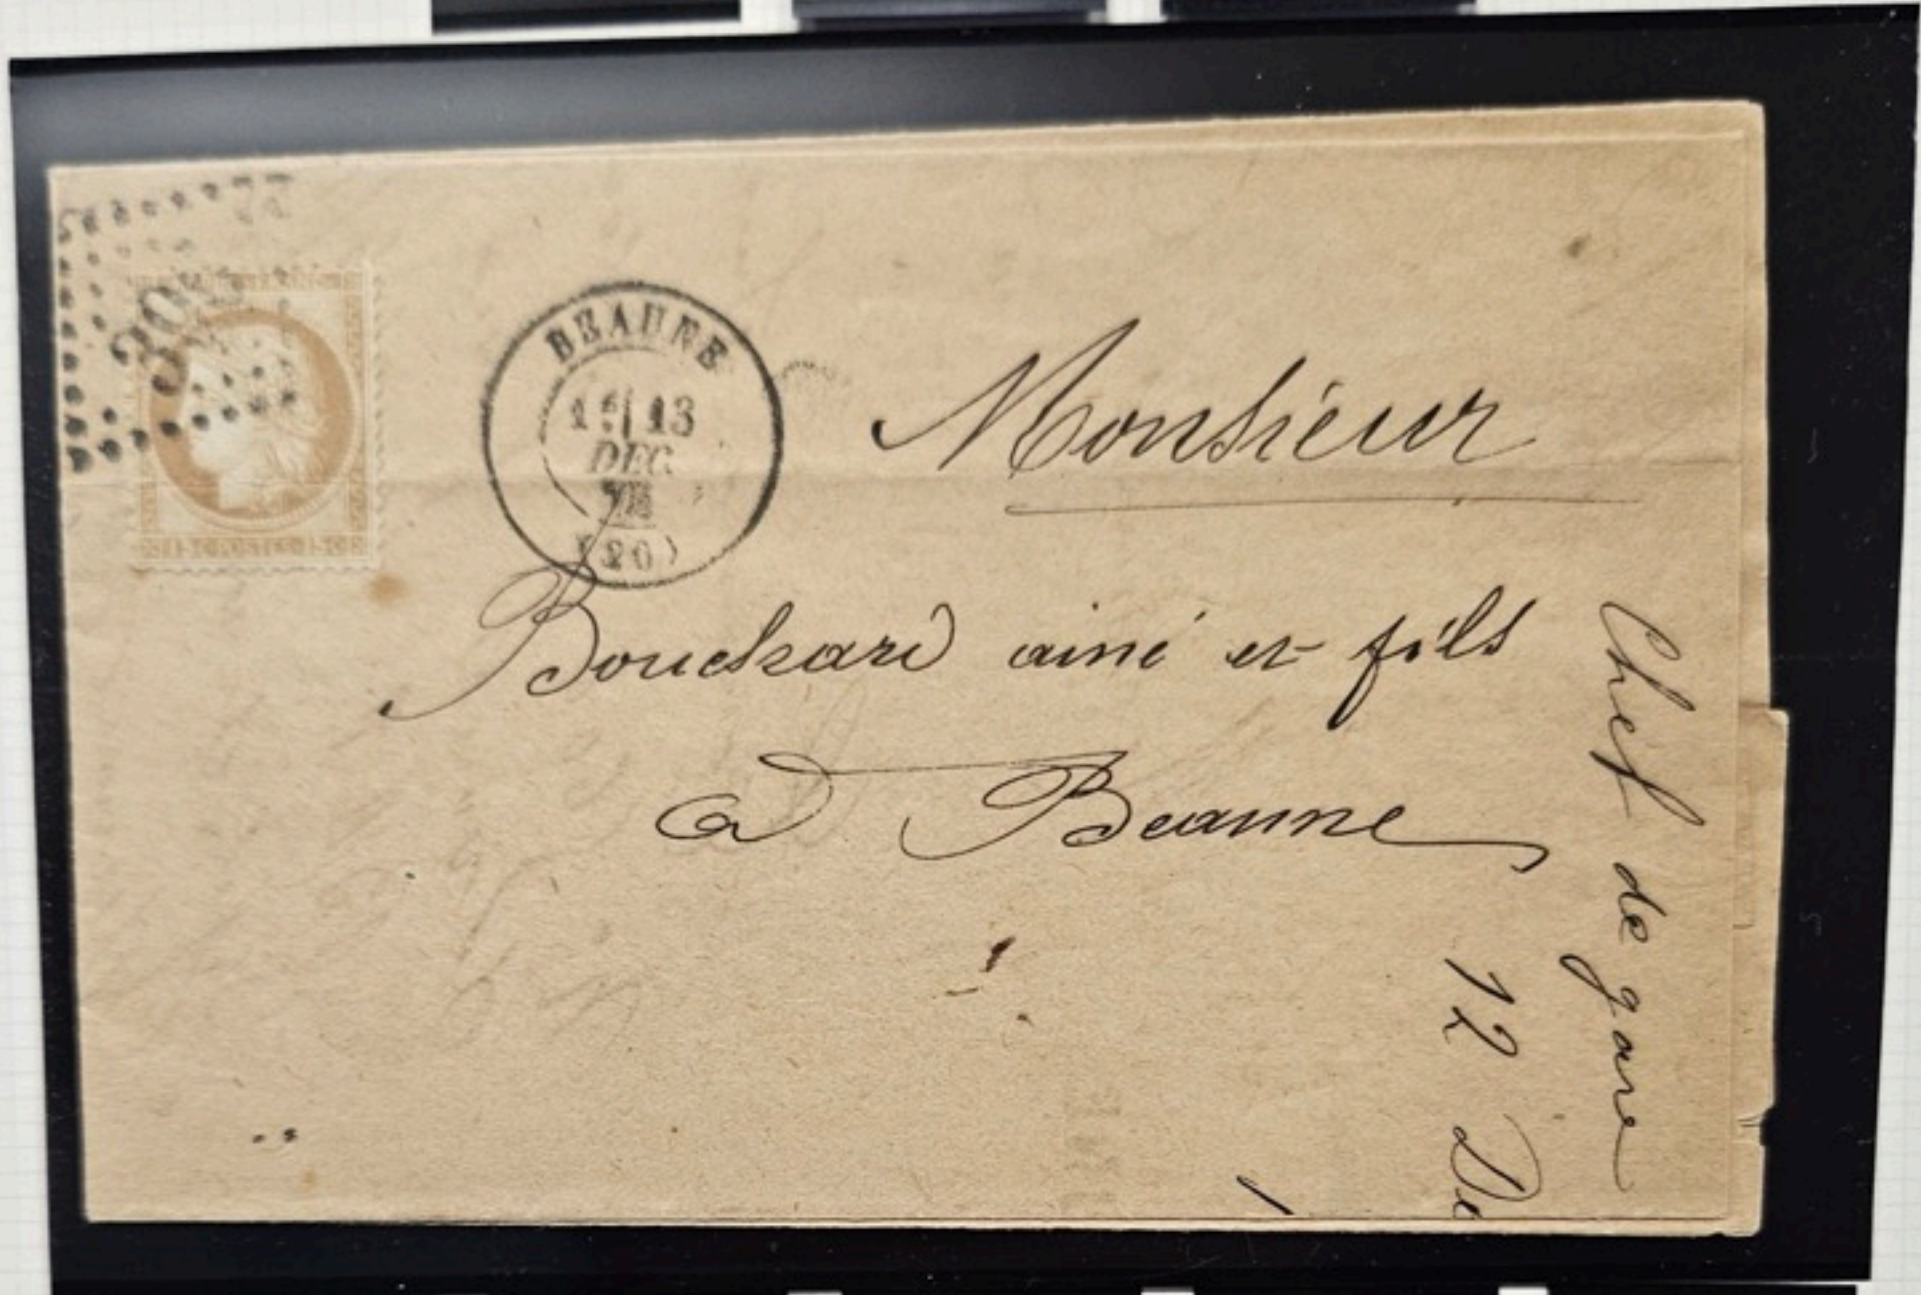 BEAUNE
13
DEC.
(20)
Monsieur
Bouchard ainé et fils
à Beaune
Chef de gare
12 De